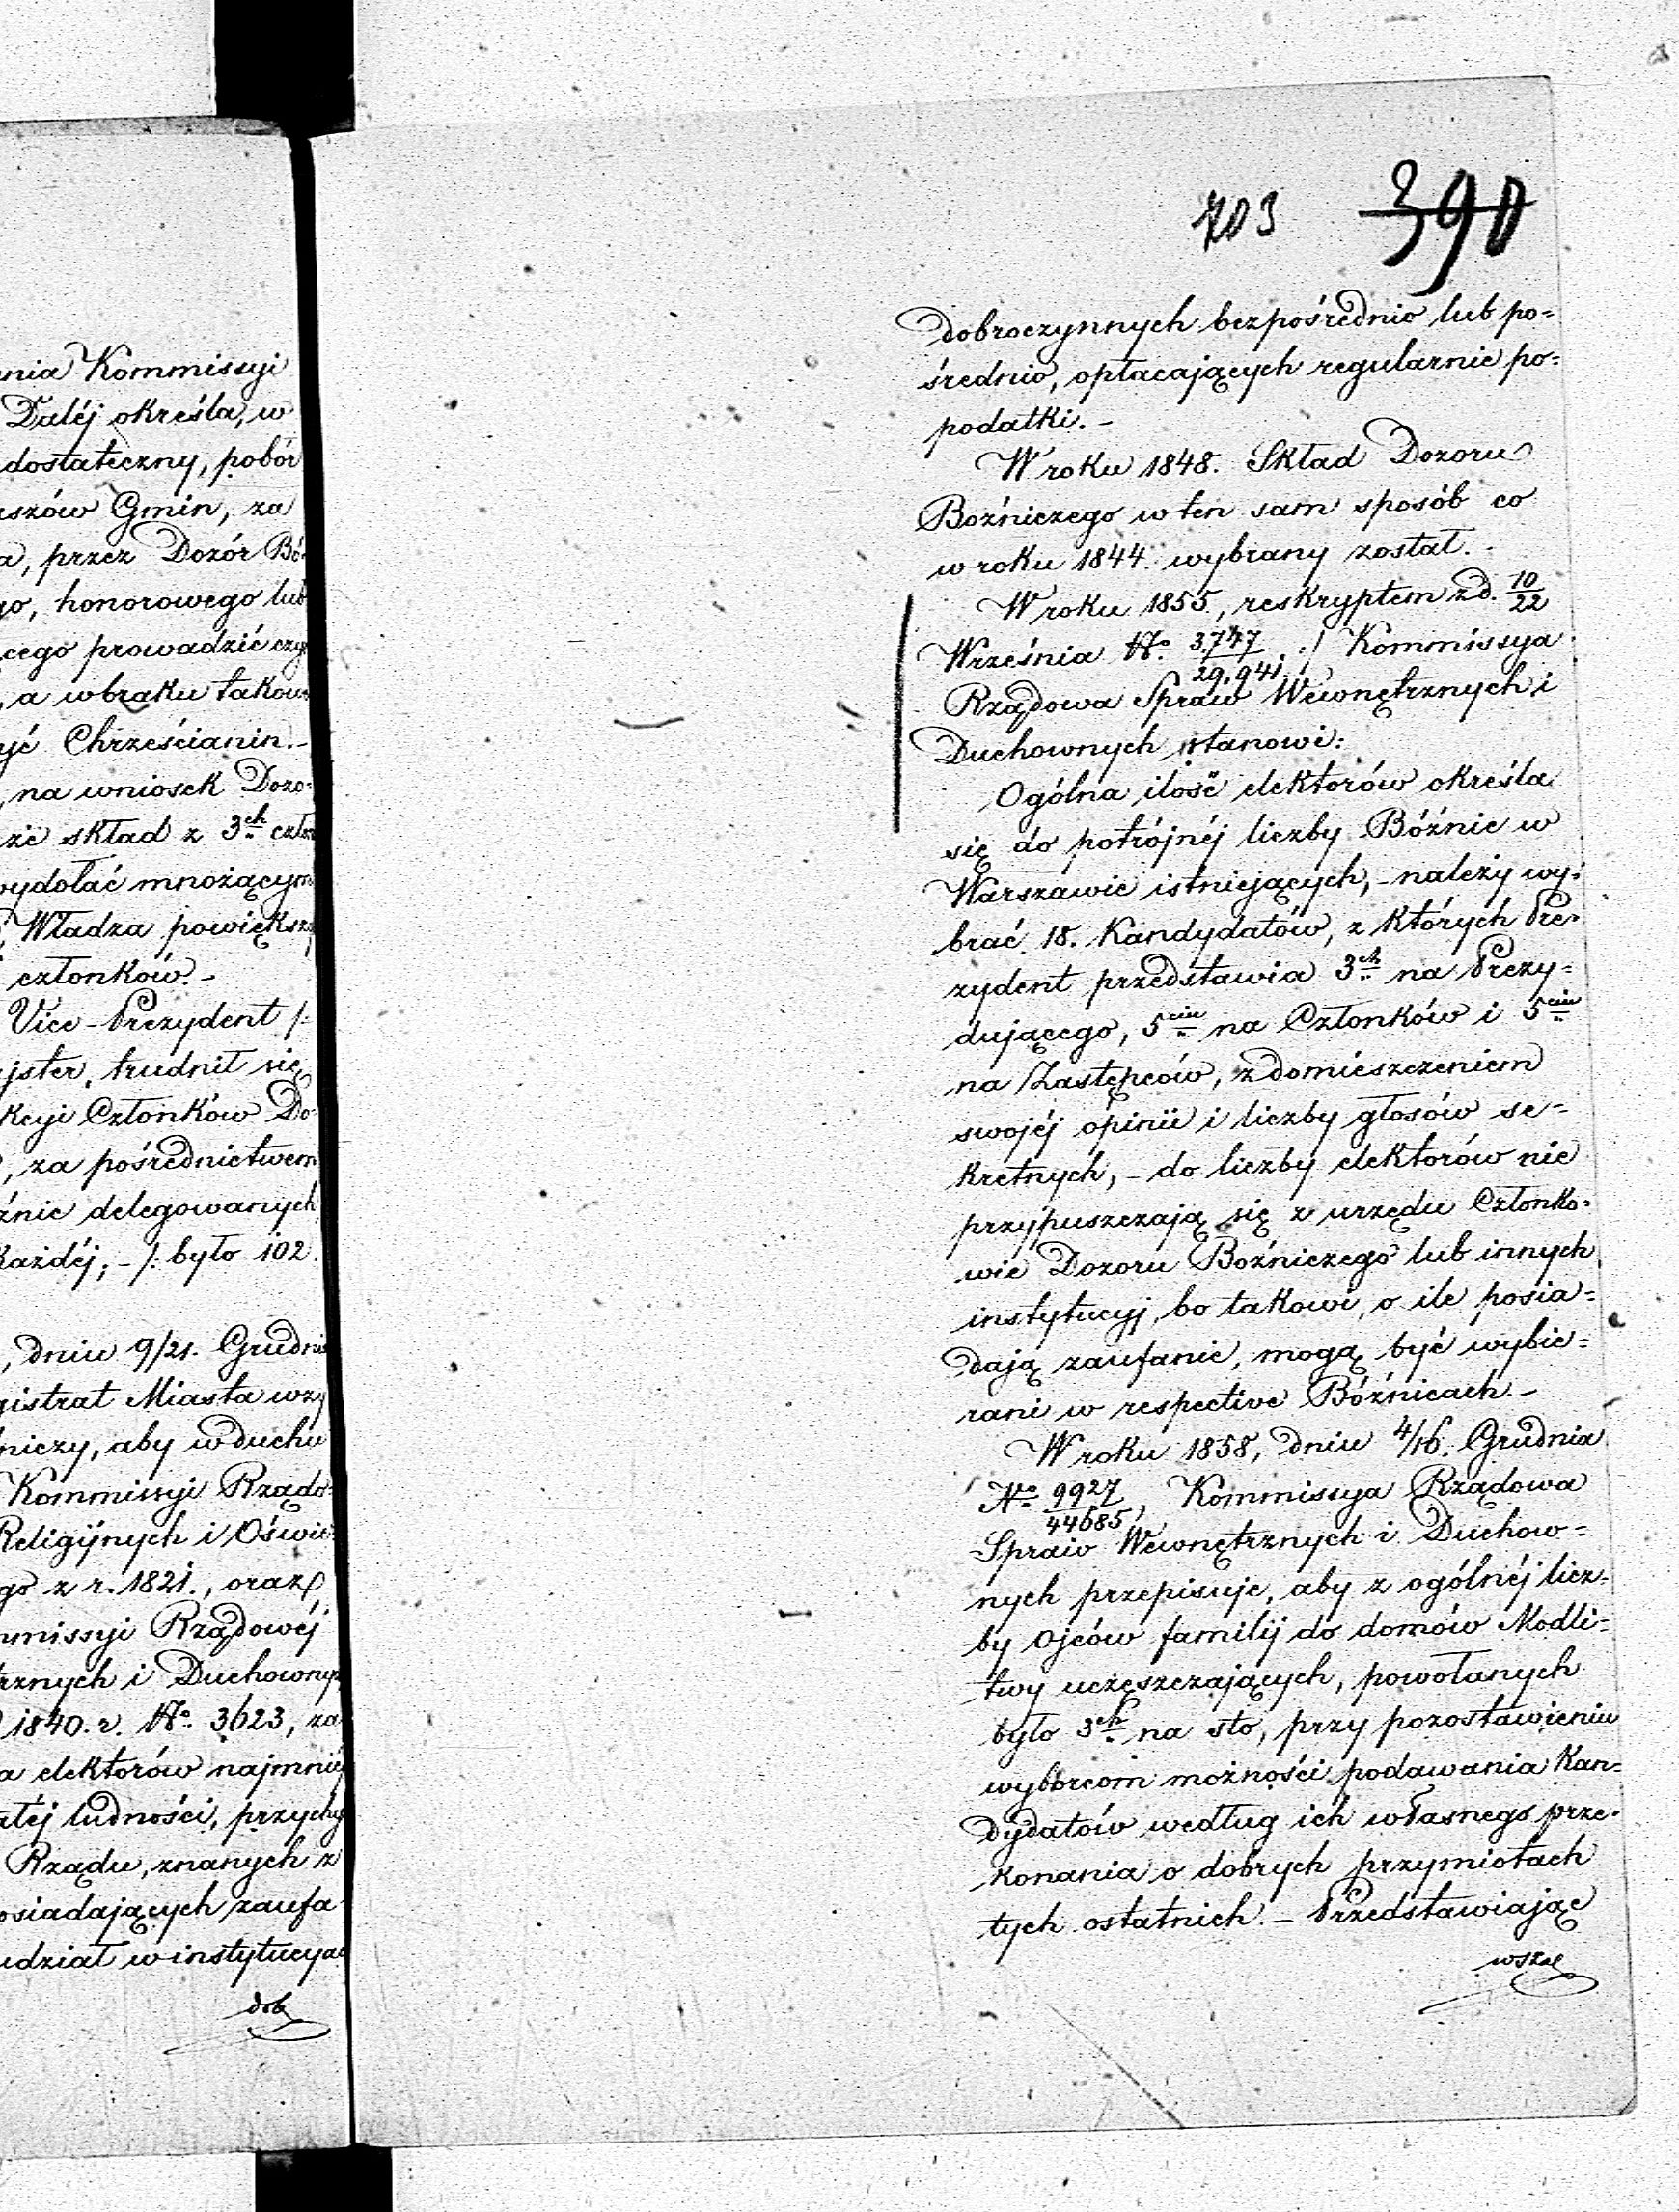 nia Kommissyi
Daléj określa, w
dostateczny, pobór
szów Gmin, za
a, przez Dozór Bó-
go, honorowego lub
cego prowadzić czy
, a w braku takow
yć Chrześcianin.-
, na wniosek Dozo-
zie skład z 3ch czło
wydołać mnożącym
, Władza powiększ
członków.-
Vice-Prezydent /:
jster, trudnił się
kcyi Członków Do-
, za pośrednictwem
źnic delegowanych
Każdéj, - /: było 102.
, dniu 9/21. Grudni
gistrat Miasta wzy
niczy, aby w duchu
Kommissyi Rządo-
Religijnych i Oświe
go z r. 1821., oraz
mmissyi Rządowéj
rznych i Duchownych
1840. r. No. 3623, za
a elektorów najmniéj
ałéj ludności, przychy
Rządu, znanych z
osiadających zaufa-
udział w instytucyac
dob
703 390
dobroczynnych bezpośrednio lub po=
średnio, opłacających regularnie po=
podatki. -
W roku 1848. Skład Dozoru
Bożniczego w ten sam sposób co
w roku 1844. wybrany został. -
W roku 1855, reskryptem z d. 10/22
Września No. 3747/29.941. :/ Kommissya
Rządowa Spraw Wewnętrznych i
Duchownych stanowi:
Ogólna ilość elektorów określa
się do potrójnéj liczby Bóżnic w
Warszawie istniejących, - należy wy=
brać 18. Kandydatów, z których Pre=
zydent przedstawia 3ch na Prezy=
dującego, 5ciu na Członków i 5ciu
na Zastępców, z domieszczeniem
swojéj opinii i liczby głosów se=
kretnych, - do liczby elektorów nie
przypuszczają się z urzędu Członko=
wie Dozoru Bożniczego lub innych
instytucyj, bo takowi, o ile posia=
dają zaufanie, mogą być wybie=
rani w respective Bóżnicach. -
W roku 1858, dniu 4/16. Grudnia
No. 9927/44685, Kommissya Rządowa
Spraw Wewnętrznych i Duchow=
nych przepisuje, aby z ogólnéj licz=
by Ojców familij do domów Modli=
twy uczęszczających, powołanych
było 3ch na sto, przy pozostawieniu
wyborcom możności podawania Kan=
dydatów według ich własnego prze=
konania o dobrych przymiotach
tych ostatnich. - Przedstawiając
wszal